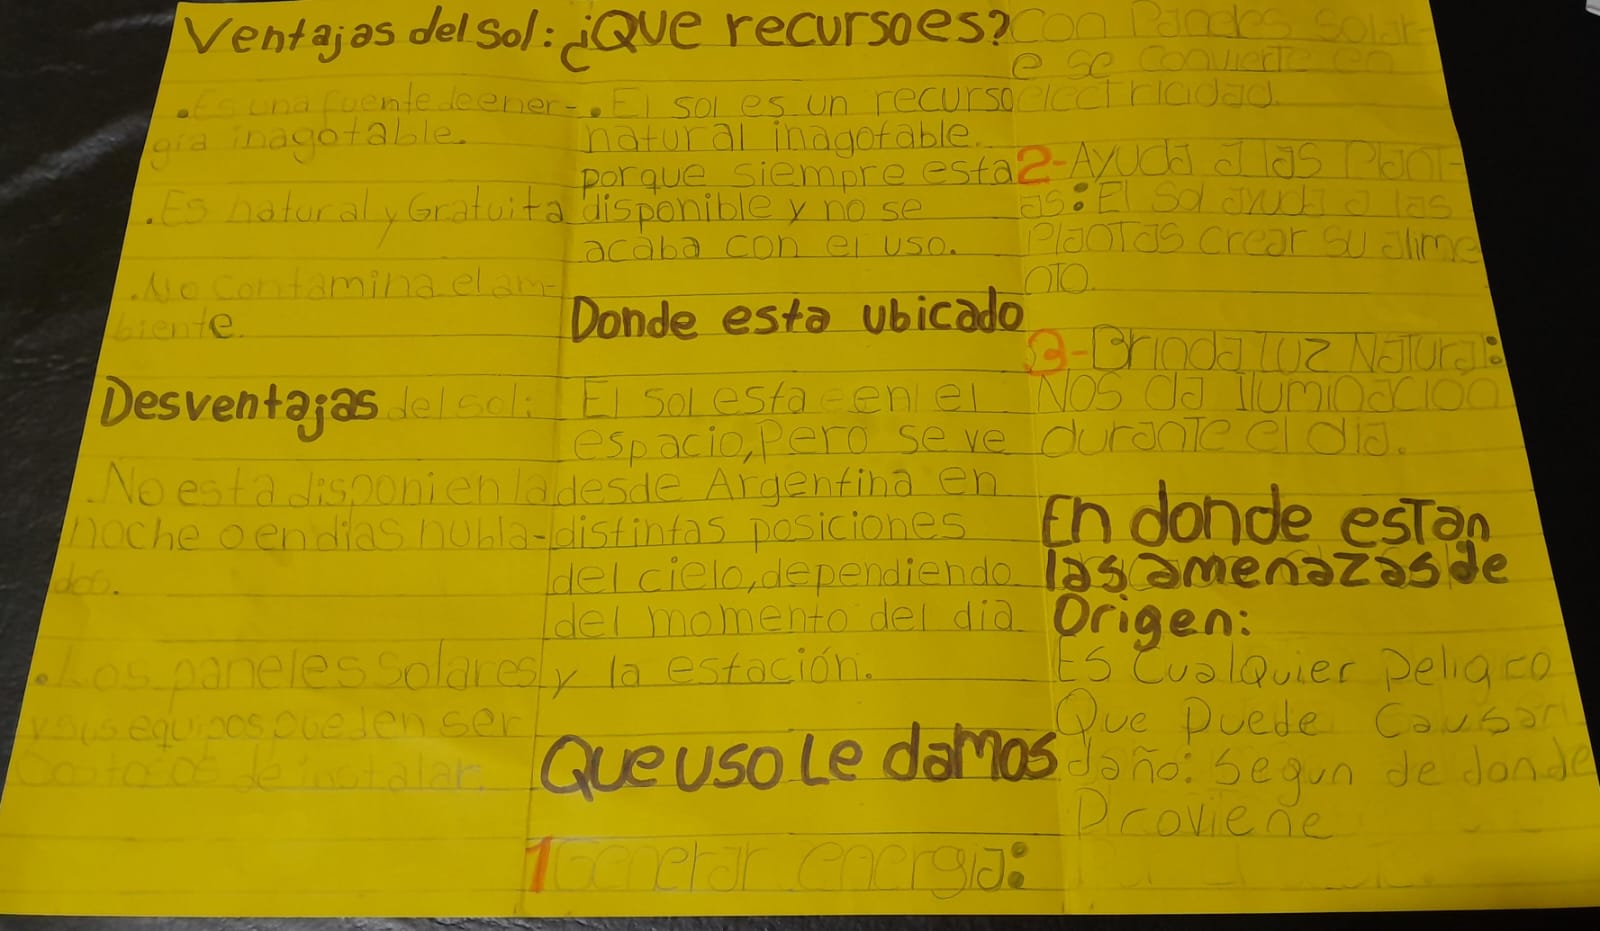 Ventajas del Sol:
.Es una fuente de ener-
gía inagotable.
.Es natural y Gratuita
.No contamina el am-
biente.
Desventajas del sol:
.No esta disponi en la
noche o en dias nubla-
dos.
.Los paneles solares
y sus equipos pueden ser
costosos de instalar.
¿QUE recurso es?
.El sol es un recurso
natural inagotable.
porque siempre esta
disponible y no se
acaba con el uso.
Donde esta ubicado
El sol esta en el
espacio, Pero se ve
desde Argentina en
distintas posiciones
del cielo, dependiendo
del momento del dia
y la estación.
Que uso Le damos
1 Generar energia:
Con Paneles Solar
e se convierte en
electricidad.
2-Ayuda a las Plant-
as: El Sol ayuda a las
Plantas crear su alime
nto.
3-Brinda luz Natural:
Nos da Iluminacion
durante el dia.
En donde estan
las amenazas de
Origen:
Es Cualquier Peligro
Que Puede Causar
daño: Segun de donde
Proviene